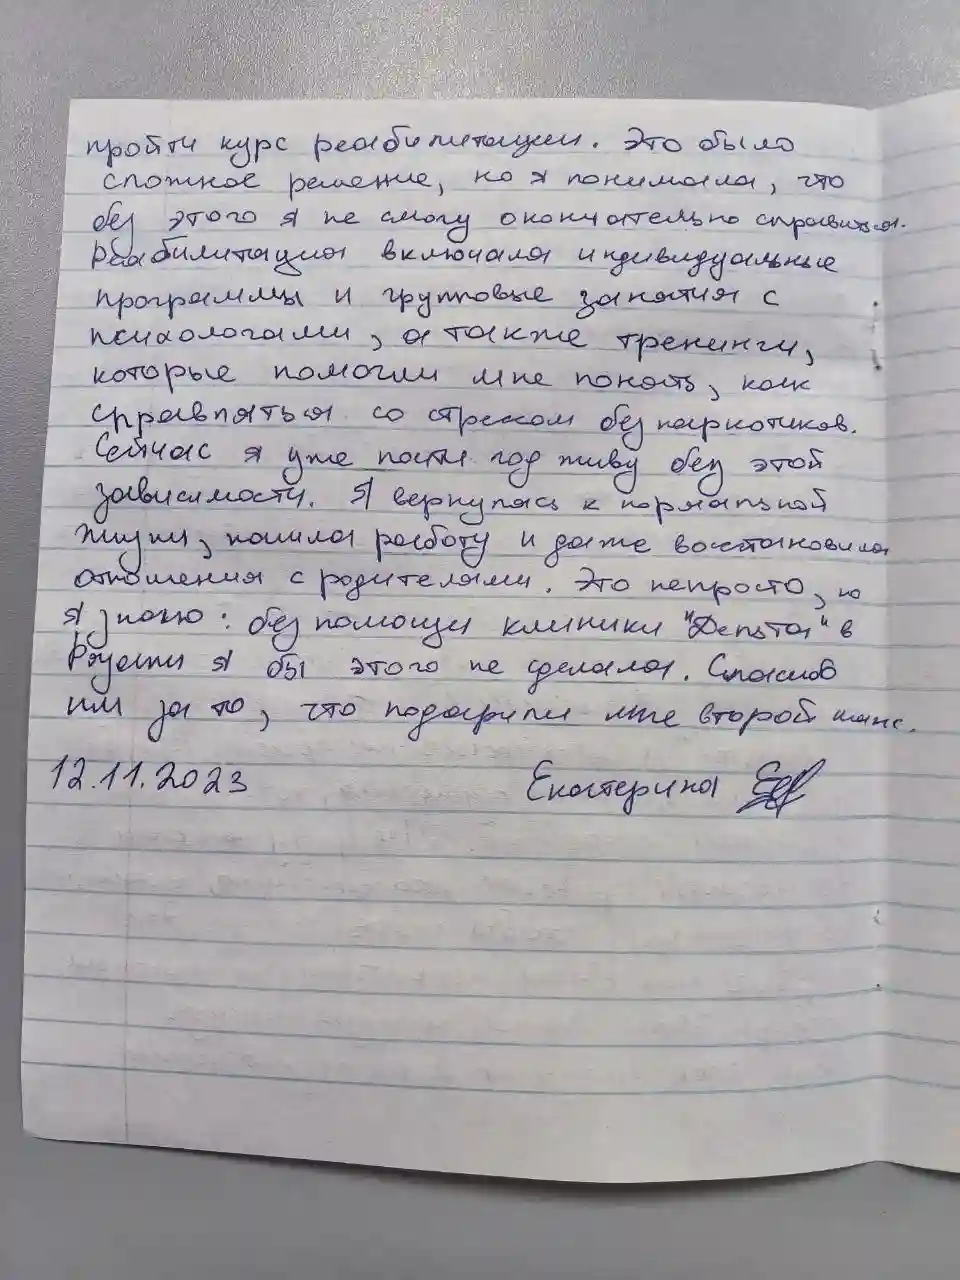 пройти курс реабилитации. Это было
сложное решение, но я понимала, что
без этого я не смогу окончательно справиться.
Реабилитация включала индивидуальные
программы и групповые занятия с
психологами, а также тренинги,
которые помогли мне понять, как
справляться со стрессом без наркотиков.
Сейчас я уже почти год живу без этой
зависимости. Я вернулась к нормальной
жизни, нашла работу и даже восстановила
отношения с родителями. Это непросто, но
я знаю: без помощи клиники "Дельта" в
я бы этого не сделала. Спасибо
им за то, что подарили мне второй шанс.
12.11.2023 Екатерина